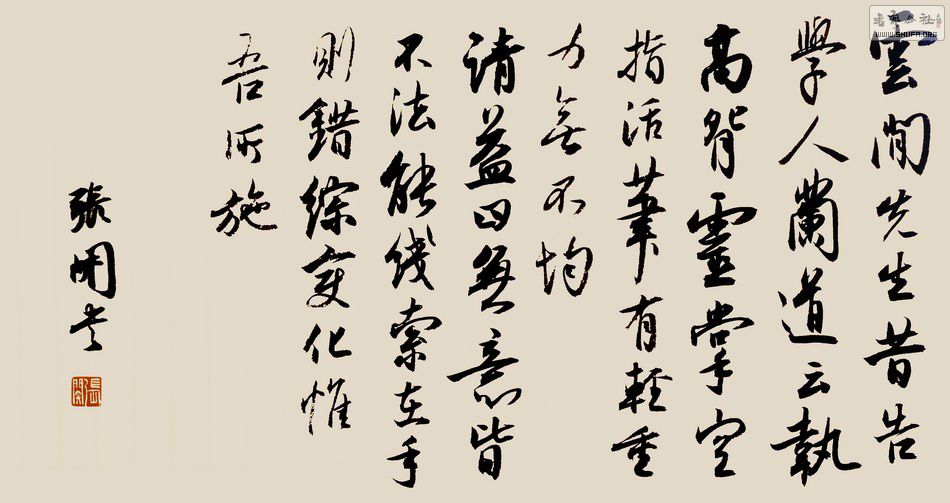 雲間先生昔告
學人蘭道云執
高臂靈掌空
指活筆有輕重
力無不均
請益曰無意皆
不法能綫索在手
則錯綜變化惟
吾所施
張開書
張開
WWW.SHUFA.ORG